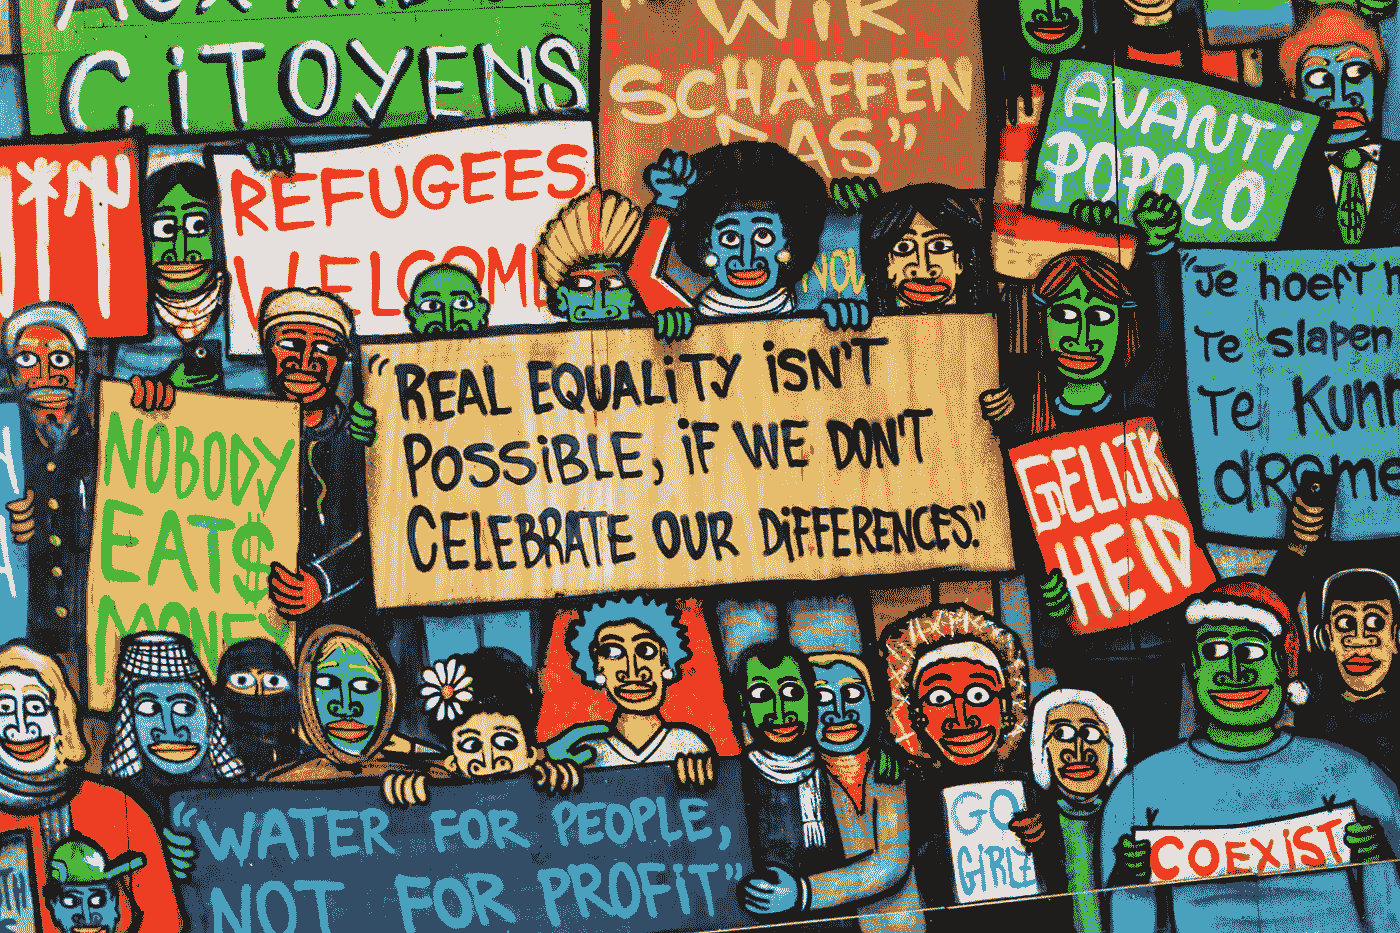 AUX
CiTOYENS
"WiR
SCHAFFEN
DAS"
AVANTi
POPOLO
REFUGEES
WELCOME
"Je hoeft
Te slapen
Te
"REAL EQUALiTY iSN'T
POSSiBLE, iF WE DON'T
CELEBRATE OUR DiFFERENCES."
NOBODY
EAT$
MONEY
GELIJK
HEID
"WATER FOR PEOPLE,
NOT FOR PROFiT"
GO
GiRLZ
COEXiST